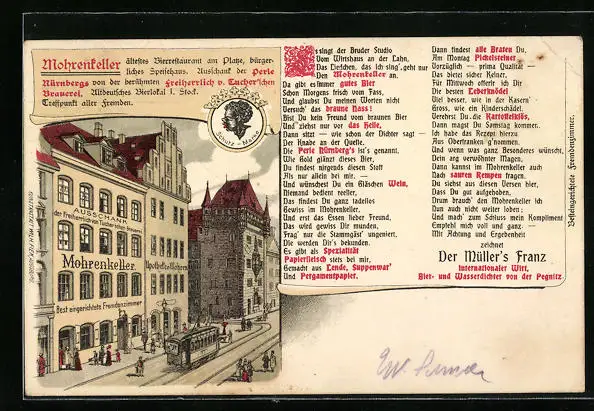 Mohrenkeller ältestes Bierrestaurant am Platze, bürger-
liches Speisehaus. Ausschank der Perle
Nürnbergs von der berühmten Freiherrlich v. Tucher'schen
Brauerei. Altdeutsches Bierlokal I. Stock.
Treffpunkt aller Fremden.
Schutz-Marke
AUSSCHANK
der Freiherrlich von Tucher'schen Brauerei
Mohrenkeller.
Best eingerichtete Fremdenzimmer
Apotheke z. Mohren
Es singt der Bruder Studio
Vom Wirtshaus an der Lahn,
Das Lieschen, das ich sing', geht nur
Den Mohrenkeller an.
Da gibt es immer gutes Bier
Schon Morgens frisch vom Fass,
Und glaubst Du meinen Worten nicht
Versuch' das braune Nass!
Bist Du kein Freund vom braunen Bier
Und ziehst nur vor das Helle,
Dann sitzt — wie schon der Dichter sagt —
Der Knabe an der Quelle.
Die Perle Nürnberg's ist's genannt,
Wie Gold glänzt dieses Bier,
Du findest nirgends diesen Stoff
Als nur allein bei mir. —
Und wünschest Du ein Gläschen Wein,
Niemand bedient reeller,
Das findest Du ganz tadellos
Gewiss im Mohrenkeller.
Und erst das Essen lieber Freund,
Das wird gewiss Dir munden,
Frag' nur die Stammgäst' ungeniert,
Die werden Dir's bekunden.
Es gibt als Spezialität
Papierfleisch stets bei mir,
Gemacht aus Lende, Suppenwar'
Und Pergamentpapier.
Dann findest alle Braten Du,
Am Montag Pichelsteiner
Vorzüglich — prima Qualität —
Das bietet sicher Keiner,
Für Mittwoch offerir ich Dir
Die benen Leberknödel
Viel besser, wie in der Kasern'
Gross, wie ein Kinderschädel.
Verehrst Du die Kartoffelklös,
Dann magst Du Samstag kommen,
Ich habe das Rezept hierzu
Aus Oberfranken g'nommen.
Und wenn was ganz Besonderes wünscht,
Dein arg verwöhnter Magen,
Dann kannst im Mohrenkeller auch
Nach sauren Kempen fragen.
Du siehst aus diesen Versen hier,
Dass Du gut aufgehoben,
Drum brauch' den Mohrenkeller ich
Nun auch nicht weiter loben;
Und mach' zum Schluss mein Kompliment
Empfehl mich voll und ganz —
Mit Achtung und Ergebenheit
zeichnet
Der Müller's Franz
Internationaler Wirt,
Bier- und Wasserdichter von der Pegnitz.
Besteingerichtete Fremdenzimmer.